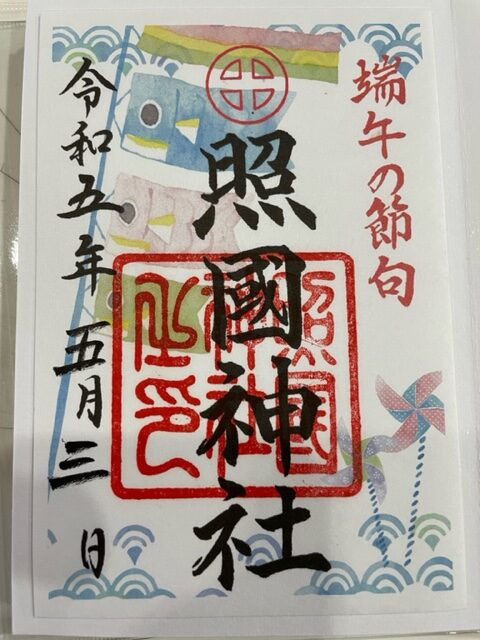 端午の節句
照國神社
令和五年 五月三日